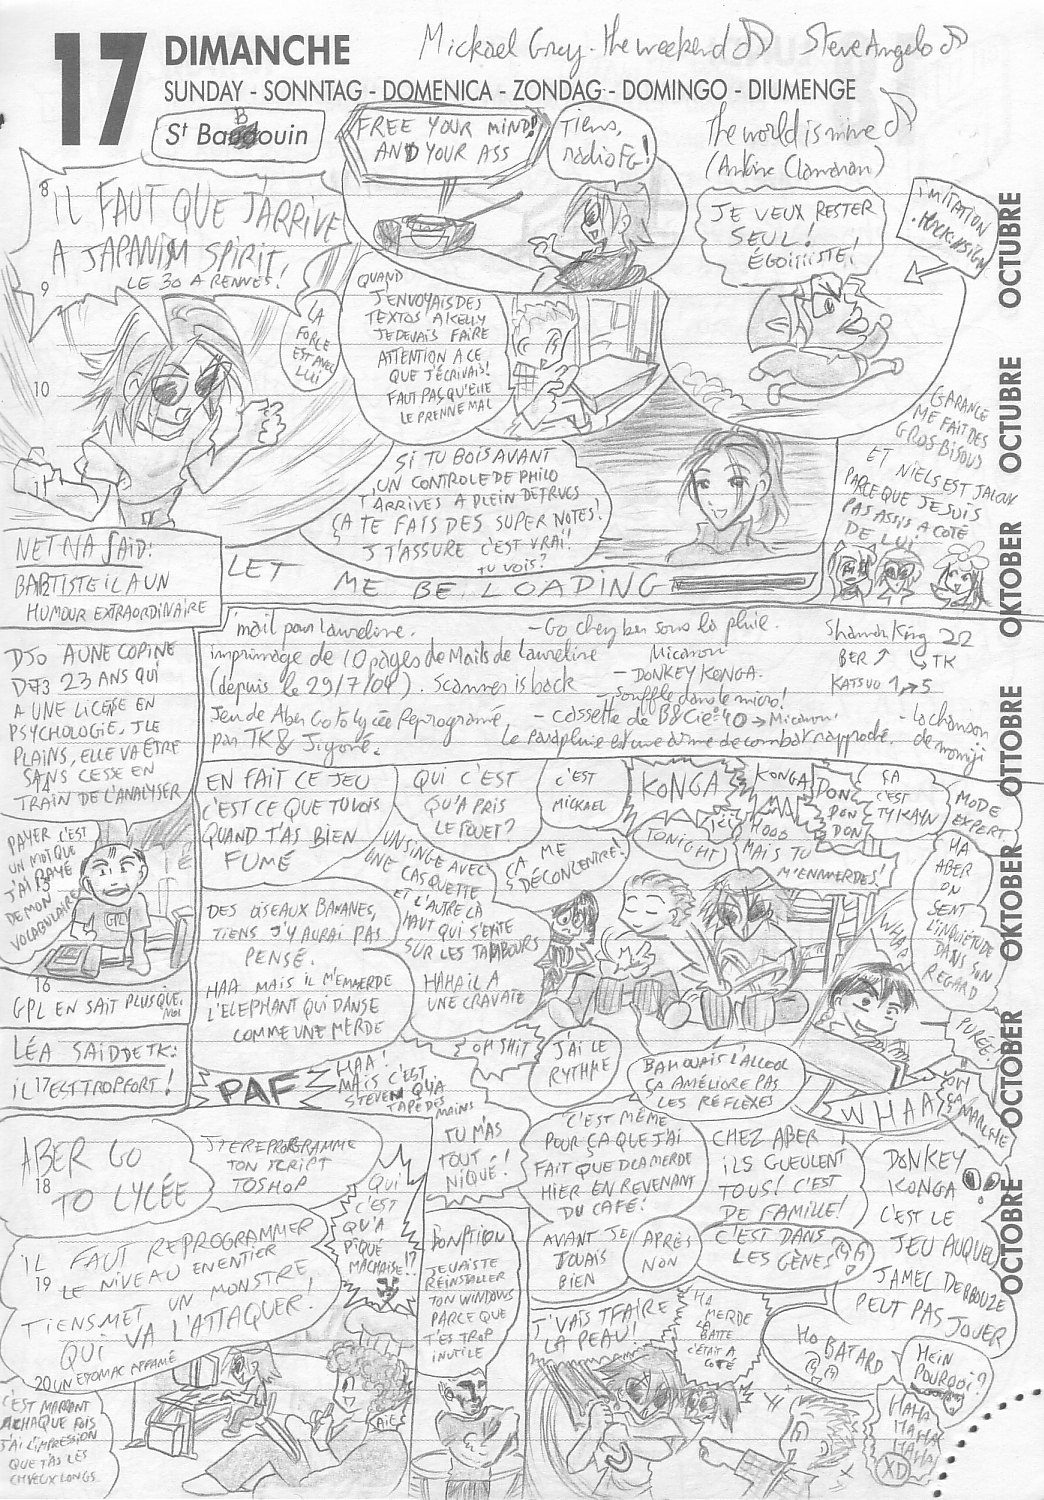 17 DIMANCHE
Mickael Gray - the weekend Steve Angelo
SUNDAY - SONNTAG - DOMENICA - ZONDAG - DOMINGO - DIUMENGE
B
St Baudouin
The world is mine
FREE YOUR MIND!
AND YOUR ASS
Tiens,
radio FG!
8
IL FAUT QUE J'ARRIVE
A JAPANIM SPIRIT!
LE 30 A RENNES!
9
LA
FORCE
EST AVEC
LUI
10
QUAND
J'ENVOYAIS DES
TEXTOS A KELLY
JE DEVAIS FAIRE
ATTENTION A CE
QUE J'ECRIVAIS!
FAUT PAS QU'ELLE
LE PRENNE MAL
JE VEUX RESTER
SEUL!
ÉGOIIIISTE!
IMITATION
GARANCE
ME FAIT DES
GROS BISOUS
ET NIELS EST JALOUX
PARCE QUE JE SUIS
PAS ASSIS A COTÉ
DE LUI!
SI TU BOIS AVANT
UN CONTROLE DE PHILO
T'ARRIVES A PLEIN DE TRUCS
ÇA TE FAIS DES SUPER NOTES!
J T'ASSURE C'EST VRAI!
TU VOIS?
LET ME BE LOADING
NETNA SAID:
BABTISTE IL A UN
HUMOUR EXTRAORDINAIRE
DJO A UNE COPINE
23 ANS QUI
A UNE LICENSE EN
PSYCHOLOGIE, J LE
PLAINS, ELLE VA ÊTRE
SANS CESSE EN
TRAIN DE L'ANALYSER
J'mail pour Laureline.
imprimage de 10 pages de Mails de Laureline
(depuis le 29/7/04). Scanner is back
Jeu de Aber Go to lycée Reprogramé
par TK & Jigoné.
- Go chez ber sous la pluie.
- DONKEY KONGA.
- souffle dans le micro!
- cassette de
Le parapluie est une arme de combat rapproché.
Shaman King 22
BER TK
KATSUO 1 5
- La chanson
de momiji
PAYER C'EST
UN MOT QUE
J'AI RAYÉ
DE MON
VOCABULAIRE
GPL
16
GPL EN SAIT PLUS QUE
MOI
LÉA SAID DE TK:
17
IL EST TROP FORT!
EN FAIT CE JEU
C'EST CE QUE TU VOIS
QUAND T'AS BIEN
FUMÉ
QUI C'EST
QU'A PRIS
LE FOUET?
C'EST
MICKAEL
KONGA
KONGA
DON
DON
DON!
ÇA
C'EST
TYKAYN
MODE
EXPERT
TONIGHT
MAIS TU
M'ENMERDES!
ÇA ME
DÉCONCENTRE!
UN SINGE AVEC
UNE CASQUETTE
ET L'AUTRE LÀ
HAUT QUI S'EXITE
SUR LES TAMBOURS
HAHA IL A
UNE CRAVATE
DES OISEAUX BANANES,
TIENS J'Y AURAI PAS
PENSÉ.
HAA MAIS IL M'EMMERDE
L'ELEPHANT QUI DANSE
COMME UNE MERDE
HA
ABER
ON
SENT
L'INQUIÉTUDE
DANS SON
REGARD
WHAA
PURÉE!
OH SHIT
J'AI LE
RYTHME
BAH OUAIS L'ALCOOL
ÇA AMÉLIORE PAS
LES RÉFLEXES
WHAA
OH
ÇA
MARCHE
PAF
HAA!
MAIS C'EST
STEVEN QU'A
TAPÉ DES
MAINS
TU M'AS
TOUT
NIQUÉ!
ABER GO
TO LYCÉE
18
J'TE REPROGRAMME
TON SCRIPT
TOSHOP
QUI
C'EST
QU'A
PIQUÉ
MA CHAISE!?
19
IL FAUT REPROGRAMMER
LE NIVEAU EN ENTIER
TIENS MET UN MONSTRE
QUI VA L'ATTAQUER!
20 UN ESTOMAC AFFAMÉ
C'EST MARRANT
A CHAQUE FOIS
J'AI L'IMPRESSION
QUE T'AS LES
CHEVEUX LONGS.
JE VAIS TE
RÉINSTALLER
TON WINDOWS
PARCE QUE
T'ES TROP
INUTILE
C'EST MÊME
POUR ÇA QUE J'AI
FAIT QUE D'LA MERDE
HIER EN REVENANT
DU CAFÉ!
AVANT JE
JOUAIS
BIEN
APRÈS
NON
CHEZ ABER
ILS GUEULENT
TOUS! C'EST
DE FAMILLE!
C'EST DANS
LES GÈNES
DONKEY
KONGA
C'EST LE
JEU AUQUEL
JAMEL DEBBOUZE
PEUT PAS JOUER
HO BATARD
HEIN
POURQOI?
J'VAIS T'FAIRE
LA PEAU!
HA
MERDE
LA
BATTE
C'ÉTAIT A
COTÉ
HAHA
HAHA
HAHA
HAHA
XD
OCTOBRE OCTOBER OKTOBER OTTOBRE OKTOBER OCTUBRE OCTOBRE OCTUBRE